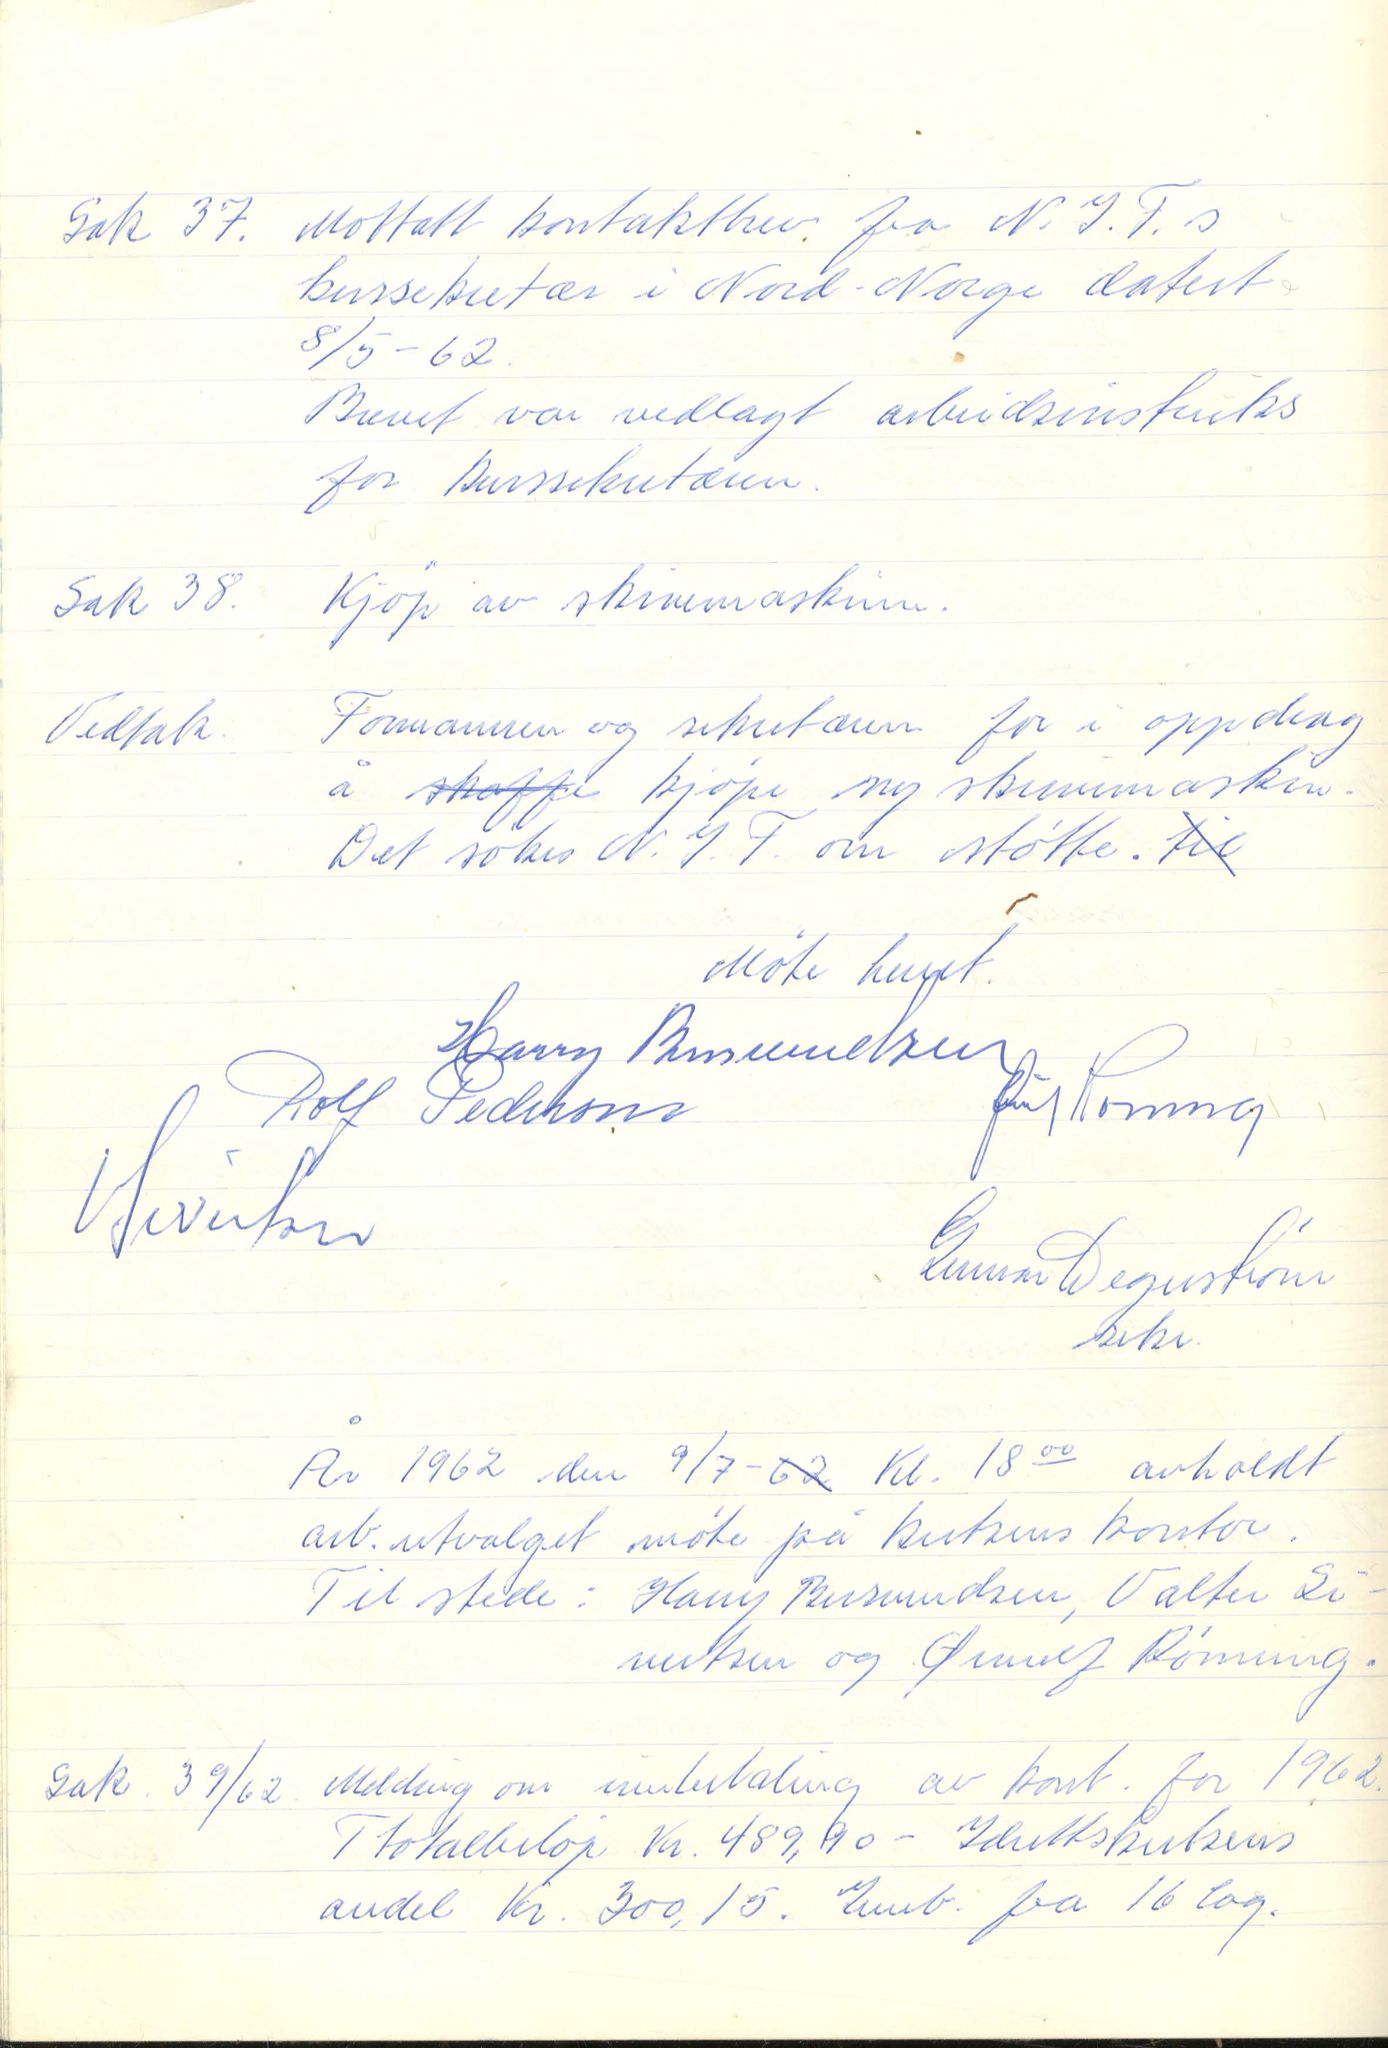 Sak 37. Mottatt kontaktbrev fra N.I.F.s
kurssekretær i Nord-Norge datert
8/5-62.
Brevet var vedlagt arbeidsinstruks
for kurssekretæren.
Sak 38. Kjöp av skrivemaskin.
Vedtak. Formannen og sekretæren får i oppdrag
å skaffe kjöpe ny skrivemaskin.
Det sökes N.I.F. om stötte. til
Möte hevet.
Harry Busmundsen
Rolf Pedersen Rönning
V Sivertsen
Gunnar Degerström
sekr.
År 1962 den 9/7-62 Kl. 18 00 avholdt
arb.utvalget möte på kretsens kontor.
Til stede: Harry Busmundsen, Valter Si-
vertsen og Ørnulf Rönning.
Sak 39/62. Melding om innbetaling av kont. for 1962.
Ttotalbelöp Kr. 489,90 - Idrettskretsens
andel Kr. 300,15. Innb. fra 16 lag.